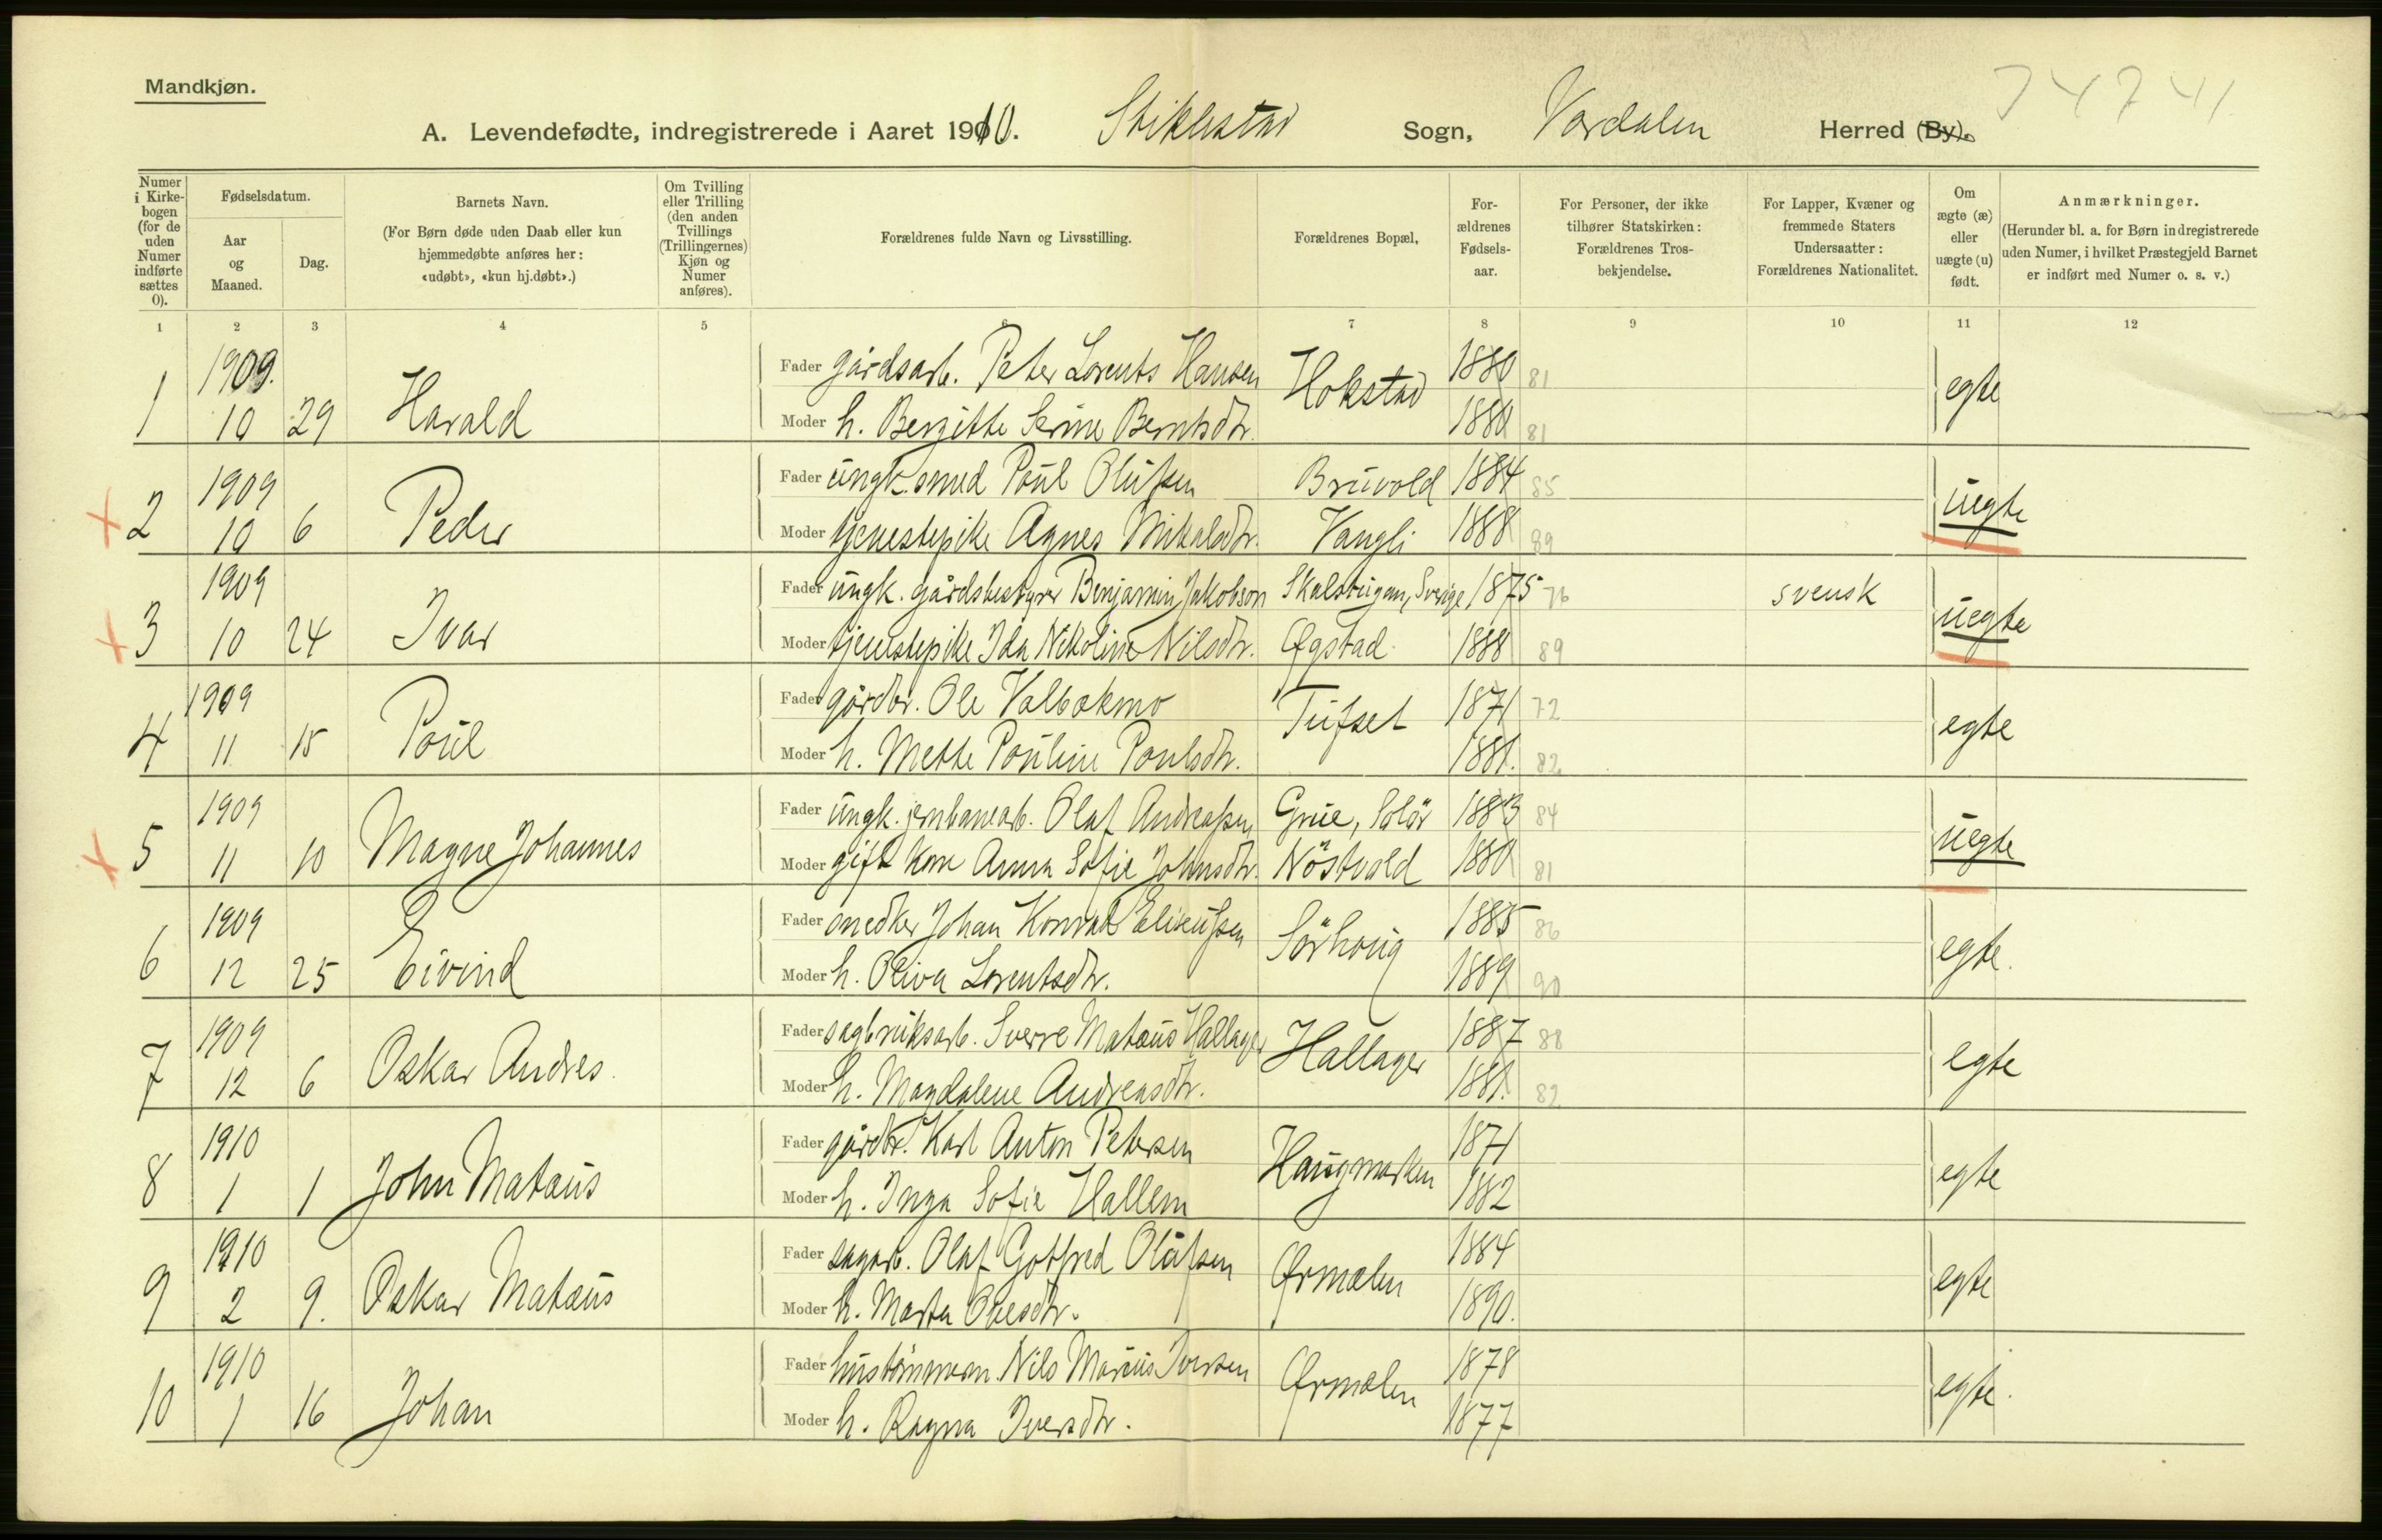 Mandkjøn.
74741
A. Levendefødte, indregistrerede i Aaret 1910. Stiklestad Sogn, Værdalen Herred (By).
Numer i Kirkebogen (for de uden Numer indførte sættes 0).
Fødselsdatum.
Aar og Maaned.
Dag.
Barnets Navn.
(For Børn døde uden Daab eller kun hjemmedøbte anføres her: «udøbt», «kun hj.døbt».)
Om Tvilling eller Trilling (den anden Tvillings (Trillingernes) Kjøn og Numer anføres).
Forældrenes fulde Navn og Livsstilling.
Forældrenes Bopæl,
Forældrenes Fødselsaar.
For Personer, der ikke tilhører Statskirken: Forældrenes Trosbekjendelse.
For Lapper, Kvæner og fremmede Staters Undersaatter: Forældrenes Nationalitet.
Om ægte (æ) eller uægte (u) født.
Anmærkninger.
(Herunder bl. a. for Børn indregistrerede uden Numer, i hvilket Præstegjeld Barnet er indført med Numer o. s. v.)
1 2 3 4 5 6 7 8 9 10 11 12
1909. Fader gårdsarb. Peter Lorents Hansen Hokstad 1880 81
1 10 29 Harald Moder h. Bergitte Serine Berntsdtr. 1880 81 egte
1909 Fader ungk. smed Poul Olufsen Bruvold 1884 85
2 10 6 Peder Moder tjenestepike Agnes Mikalsdtr. Vangli 1888 89 uegte
1909 Fader ungk. gårdsbestyrer Benjamin Jakobson Skalstugan, Sverige 1875 76 svensk
3 10 24 Ivar Moder tjenestepike Ida Nikoline Nilsdtr. Øgstad 1888 89 uegte
1909 Fader gårdbr. Ole Valbækmo Tufset 1871 72
4 11 15 Poul Moder h. Mette Pouline Poulsdtr. 1881. 82 egte
1909 Fader ungk. jernbanearb. Olaf Andreassen Grue, Solör 1883 84
5 11 10 Magne Johannes Moder gift kone Anna Sofie Johnsdtr. Nöstvold 1880 81 uegte
1909 Fader snedker Johan Konrad Eliseussen Sörhoug 1885 86
6 12 25 Eivind Moder h. Oliva Lorentsdtr. 1889 90 egte.
1909 Fader sagbruksarb. Sverre Matæus Hallager Hallager 1887 88
7 12 6 Oskar Andres. Moder h. Magdalene Andreasdtr. 1881. 82 egte
1910 Fader gårdbr. Karl Anton Petersen Haugmarken 1871
8 1 1 John Matæus Moder h. Inga Sofie Hallem 1882 egte
1910 Fader sagarb. Olaf Gotfred Olufsen Ørmælen 1884
9 2 9. Oskar Matæus Moder h. Marta Olesdtr. 1890. egte
1910 Fader hustömmerm. Nils Marius Iversen Ørmælen 1878
10 1 16 Johan Moder h. Ragna Iversdtr. 1877 egte.